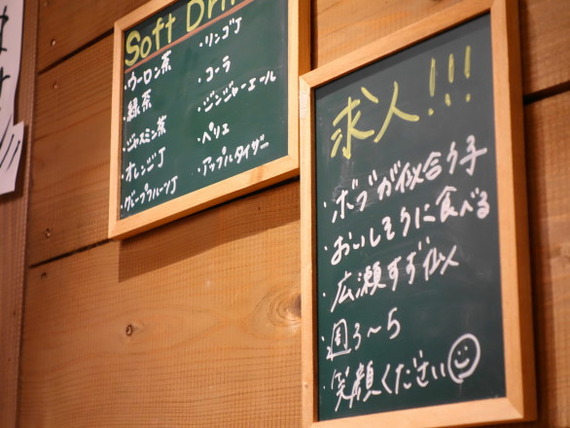 Soft Dri
・ウーロン茶
・緑茶
・ジャスミン茶
・オレンジJ
・グレープフルーツJ
・リンゴJ
・コーラ
・ジンジャーエール
・ペリエ
・アップルタイザー
求人!!!
・ボブが似合う子
・おいしそうに食べる
・広瀬すず似
・週3~5
・笑顔ください